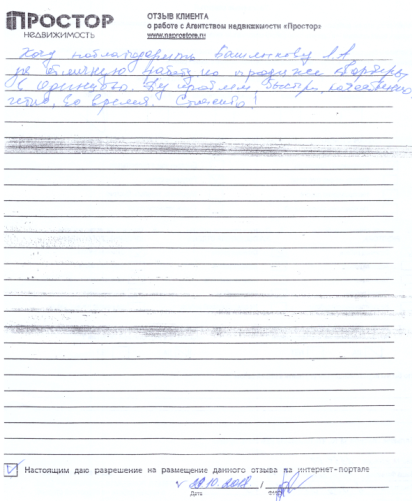 ПРОСТОР
НЕДВИЖИМОСТЬ
ОТЗЫВ КЛИЕНТА
о работе с Агентством недвижимости «Простор»
www.naprostore.ru
Хочу поблагодарить Башлыкову Л.А
за отличную работу по продаже квартиры
в Одинцово. Все провели быстро, качественно,
четко, во время. Спасибо!
Настоящим даю разрешение на размещение данного отзыва на интернет-портале
29.10.
Дата